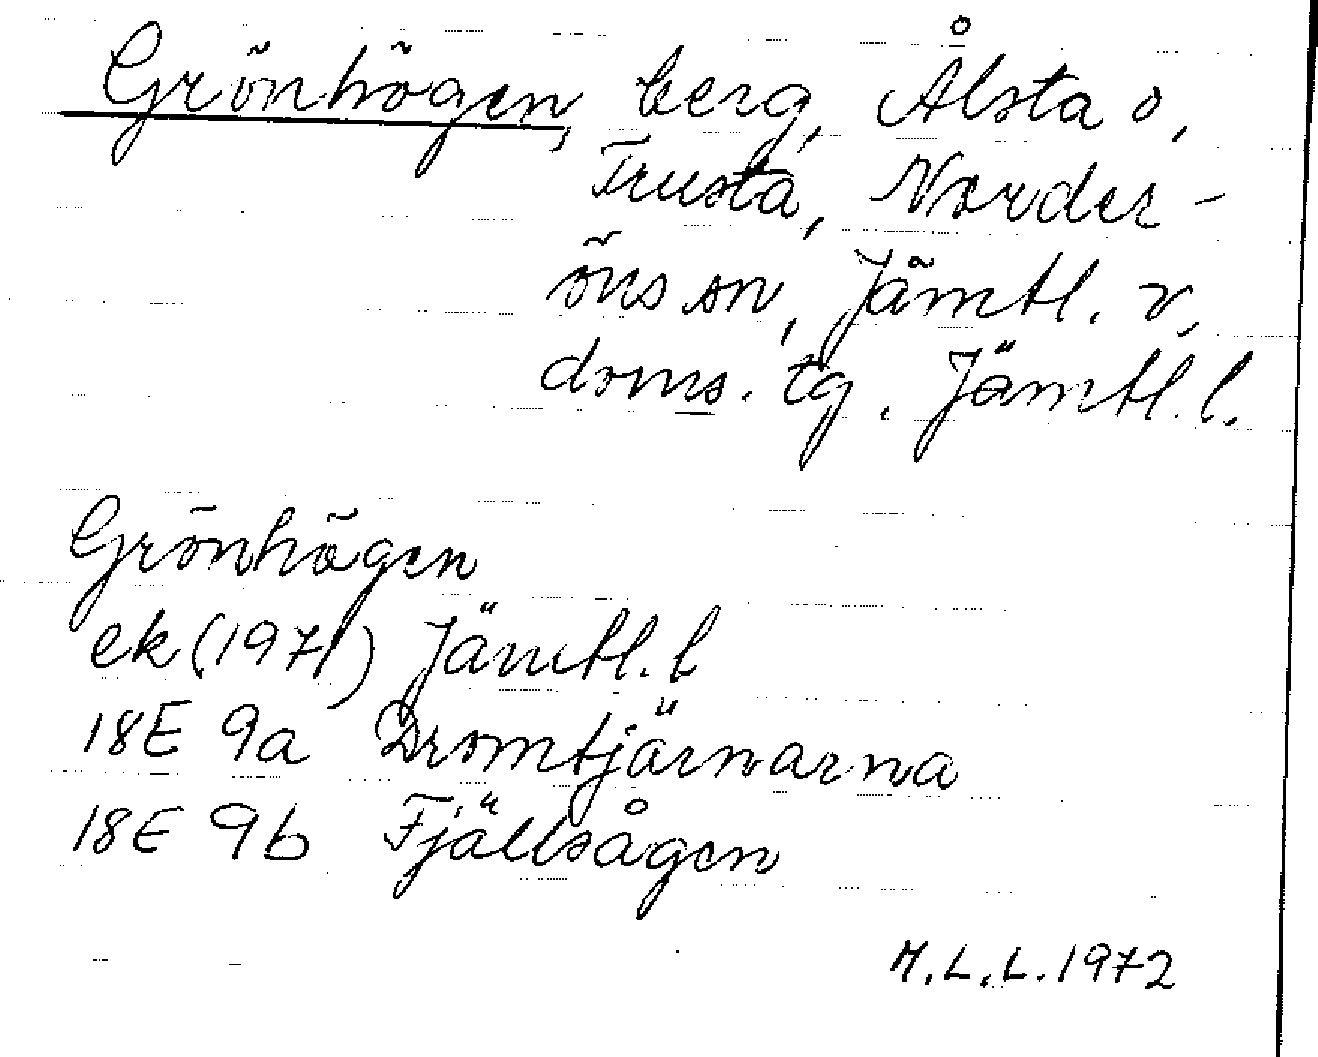 Grönhögen, berg, Ålsta o,
Trusta, Norder-
öns sn, Jämtl. v.
doms. tg. Jämtl. l.
Grönhögen
ek (1971) Jämtl. l
18E 9a Dromtjärnarna
18E 9b Fjällsågen
M.L.L. 1972